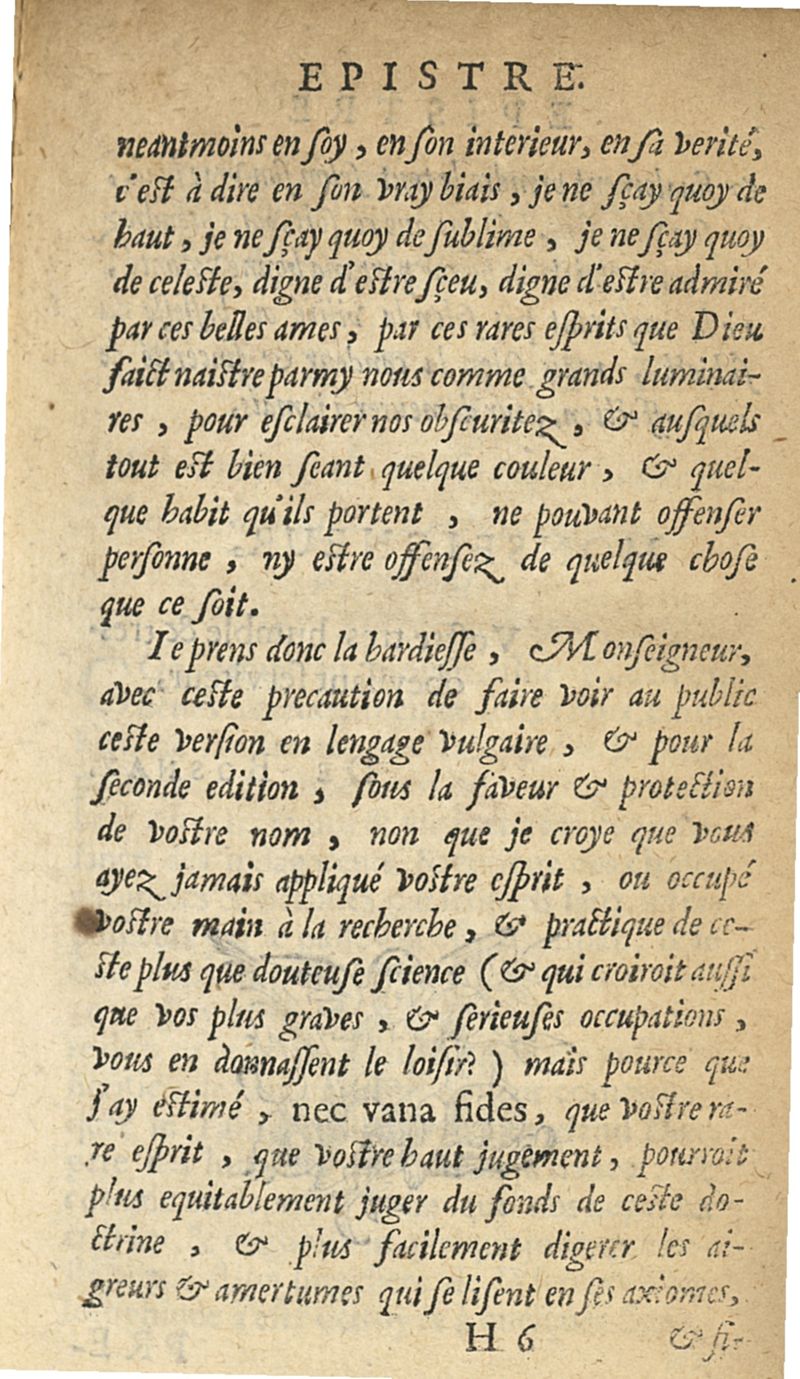 EPISTRE.
neantmoins en ſoy, en ſon interieur, en ſa verité,
c'eſt à dire en ſon vray biais, je ne ſçay quoy de
haut, je ne ſçay quoy de ſublime, je ne ſçay quoy
de celeſte, digne d'eſtre ſçeu, digne d'eſtre admiré
par ces belles ames, par ces rares eſprits que Dieu
faict naiſtre parmy nous comme grands luminai-
res, pour eſclairer nos obſcuritez, & auſquels
tout eſt bien ſeant quelque couleur, & quel-
que habit qu'ils portent, ne pouvant offenſer
perſonne, ny eſtre offenſez de quelque choſe
que ce ſoit.
Ie prens donc la hardieſſe, Monſeigneur,
avec ceſte precaution de faire voir au public
ceſte verſion en lengage vulgaire, & pour la
ſeconde edition, ſous la faveur & protection
de voſtre nom, non que je croye que vous
ayez jamais appliqué voſtre eſprit, ou occupé
voſtre main à la recherche, & practique de ce-
ſte plus que douteuſe ſcience (& qui croiroit auſſi
que vos plus graves, & ſerieuſes occupations,
vous en donnaſſent le loiſir?) mais pource que
j'ay eſtimé, nec vana fides, que voſtre ra-
re eſprit, que voſtre haut jugement, pourroit
plus equitablement juger du fonds de ceſte do-
ctrine, & plus facilement digerer les ai-
greurs & amertumes qui ſe liſent en ſes axiomes,
H 6 & ſi-